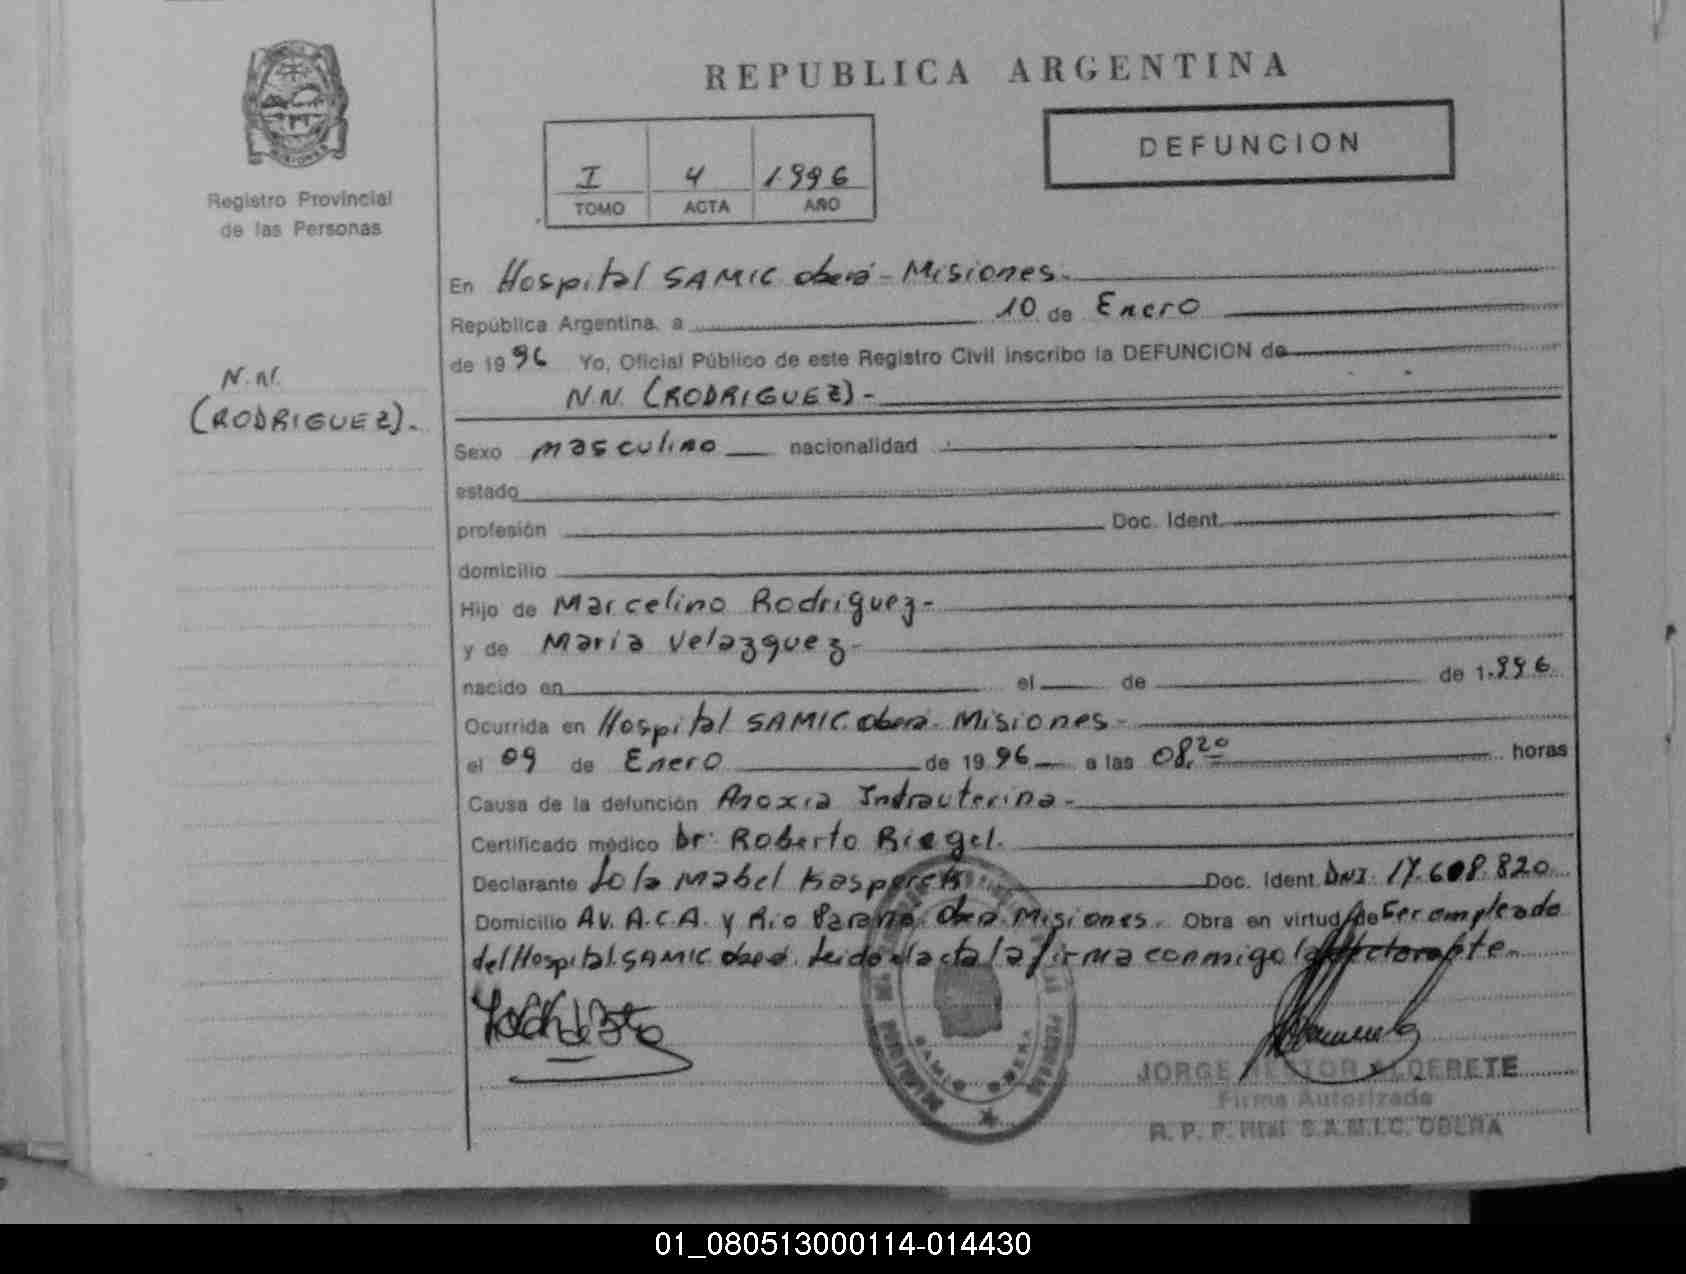 REPUBLICA ARGENTINA
DEFUNCION
I 4 1996
TOMO ACTA AÑO
MISIONES
Registro Provincial
de las Personas
N.N.
(RODRIGUEZ).-
En Hospital SAMIC Oberá - Misiones.-
República Argentina, a 10 de Enero
de 1996 Yo, Oficial Público de este Registro Civil inscribo la DEFUNCION de
N.N. (RODRIGUEZ) -
Sexo masculino nacionalidad
estado
profesión Doc. Ident.
domicilio
Hijo de Marcelino Rodriguez -
y de Maria Velazquez -
nacido en el de de 1.996
Ocurrida en Hospital SAMIC. Oberá - Misiones -
el 09 de Enero de 1996 a las 08,20 horas
Causa de la defunción Anoxia Intrauterina -
Certificado médico Dr. Roberto Riegel.
Declarante Lola Mabel Doc. Ident. DNI. 17.608.820
Domicilio AV. A.C.A. y Rio Parana. Oberá. Misiones. Obra en virtud de ser empleado
del Hospital SAMIC Oberá. Leido el acta la firma conmigo la
SAMIC OBERA
JORGE NESTOR ALDERETE
Firma Autorizada
R. P. P. Htal. S.A.M.I.C. OBERA
01_080513000114-014430